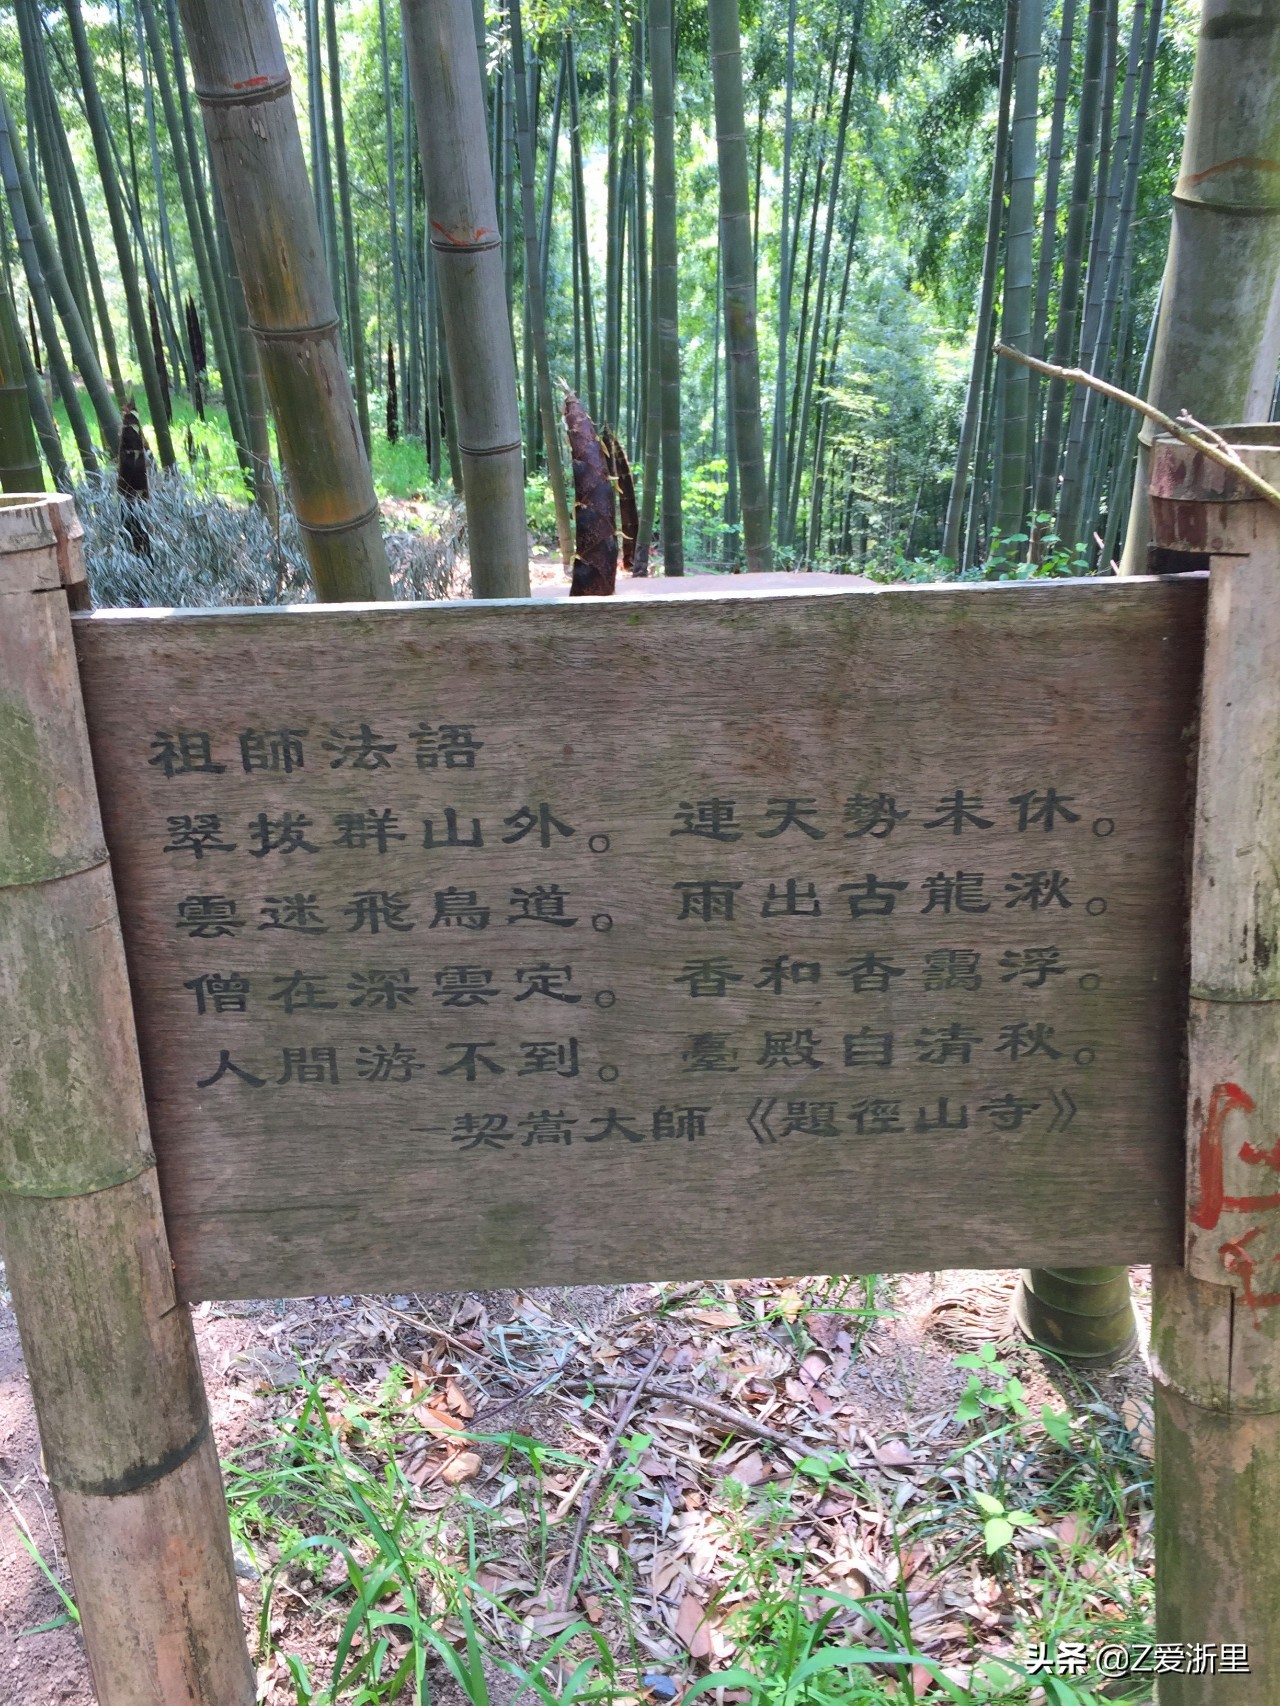 祖師法語
翠拔群山外。 連天勢未休。
雲迷飛鳥道。 雨出古龍湫。
僧在深雲定。 香和杳靄浮。
人間游不到。 臺殿自清秋。
—契嵩大師《題徑山寺》
头条 @Z爱浙里